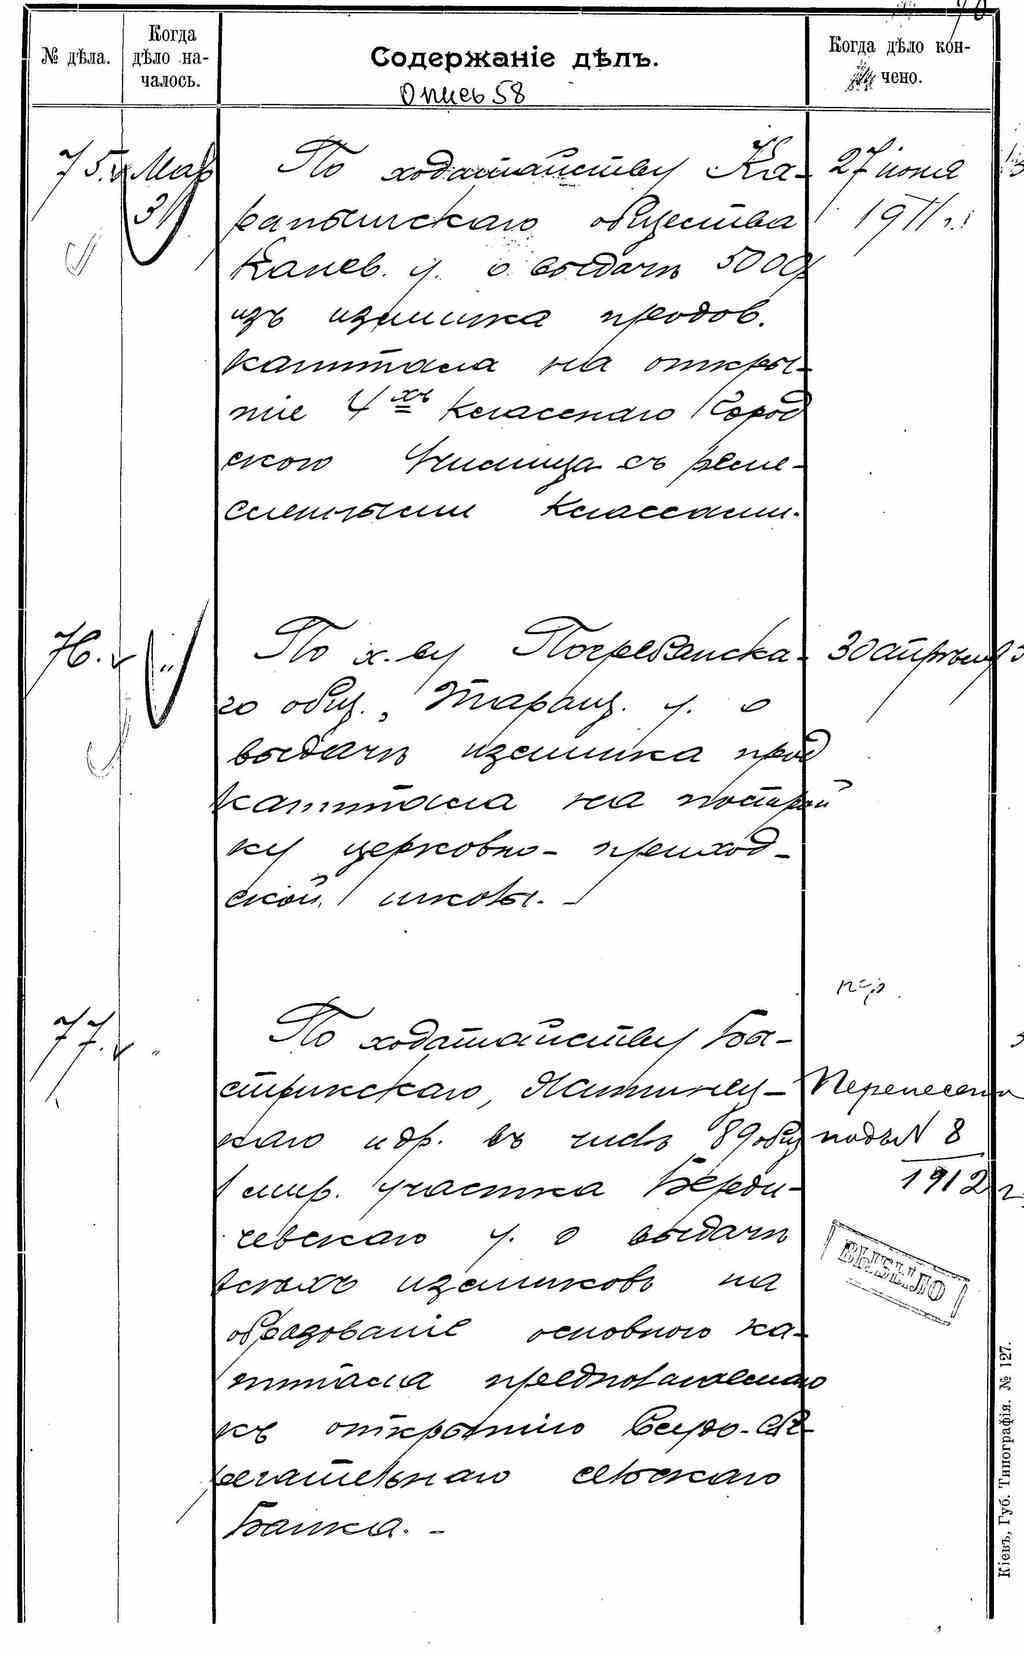 № дѣла.
Когда дѣло на-
чалось.
Содержаніе дѣлъ.
Опись 58
Когда дѣло кон-
чено.
75. Мар 31
По ходатайству Ка-
рапышскаго общества
Канев. у. о выдачѣ 5000р
изъ излишка продов.
капитала на откры-
тіе 4хъ класснаго Город
ского Училища съ реме-
сленными классами.
27 іюня
1911 г.
76. "
По х-ву Погребянска-
го общ., Таращ. у. о
выдачѣ излишка прод
капитала на построй
ку церковно-приход-
ской школы. -
30 апрѣля
77. "
По ходатайству Бы-
стрикскаго,
каго и др. въ числѣ 89 общ
1 мир. участка Берди-
чевскаго у. о выдачѣ
всѣхъ излишковъ на
образованіе основного ка-
питала предполагаемаго
къ открытію Ссудо-сбе-
регательнаго сельскаго
Банка. -
Перенесено
подъ № 8
1912 г.
ВЫБЫЛО
Кіевъ, Губ. Типографія. № 127.